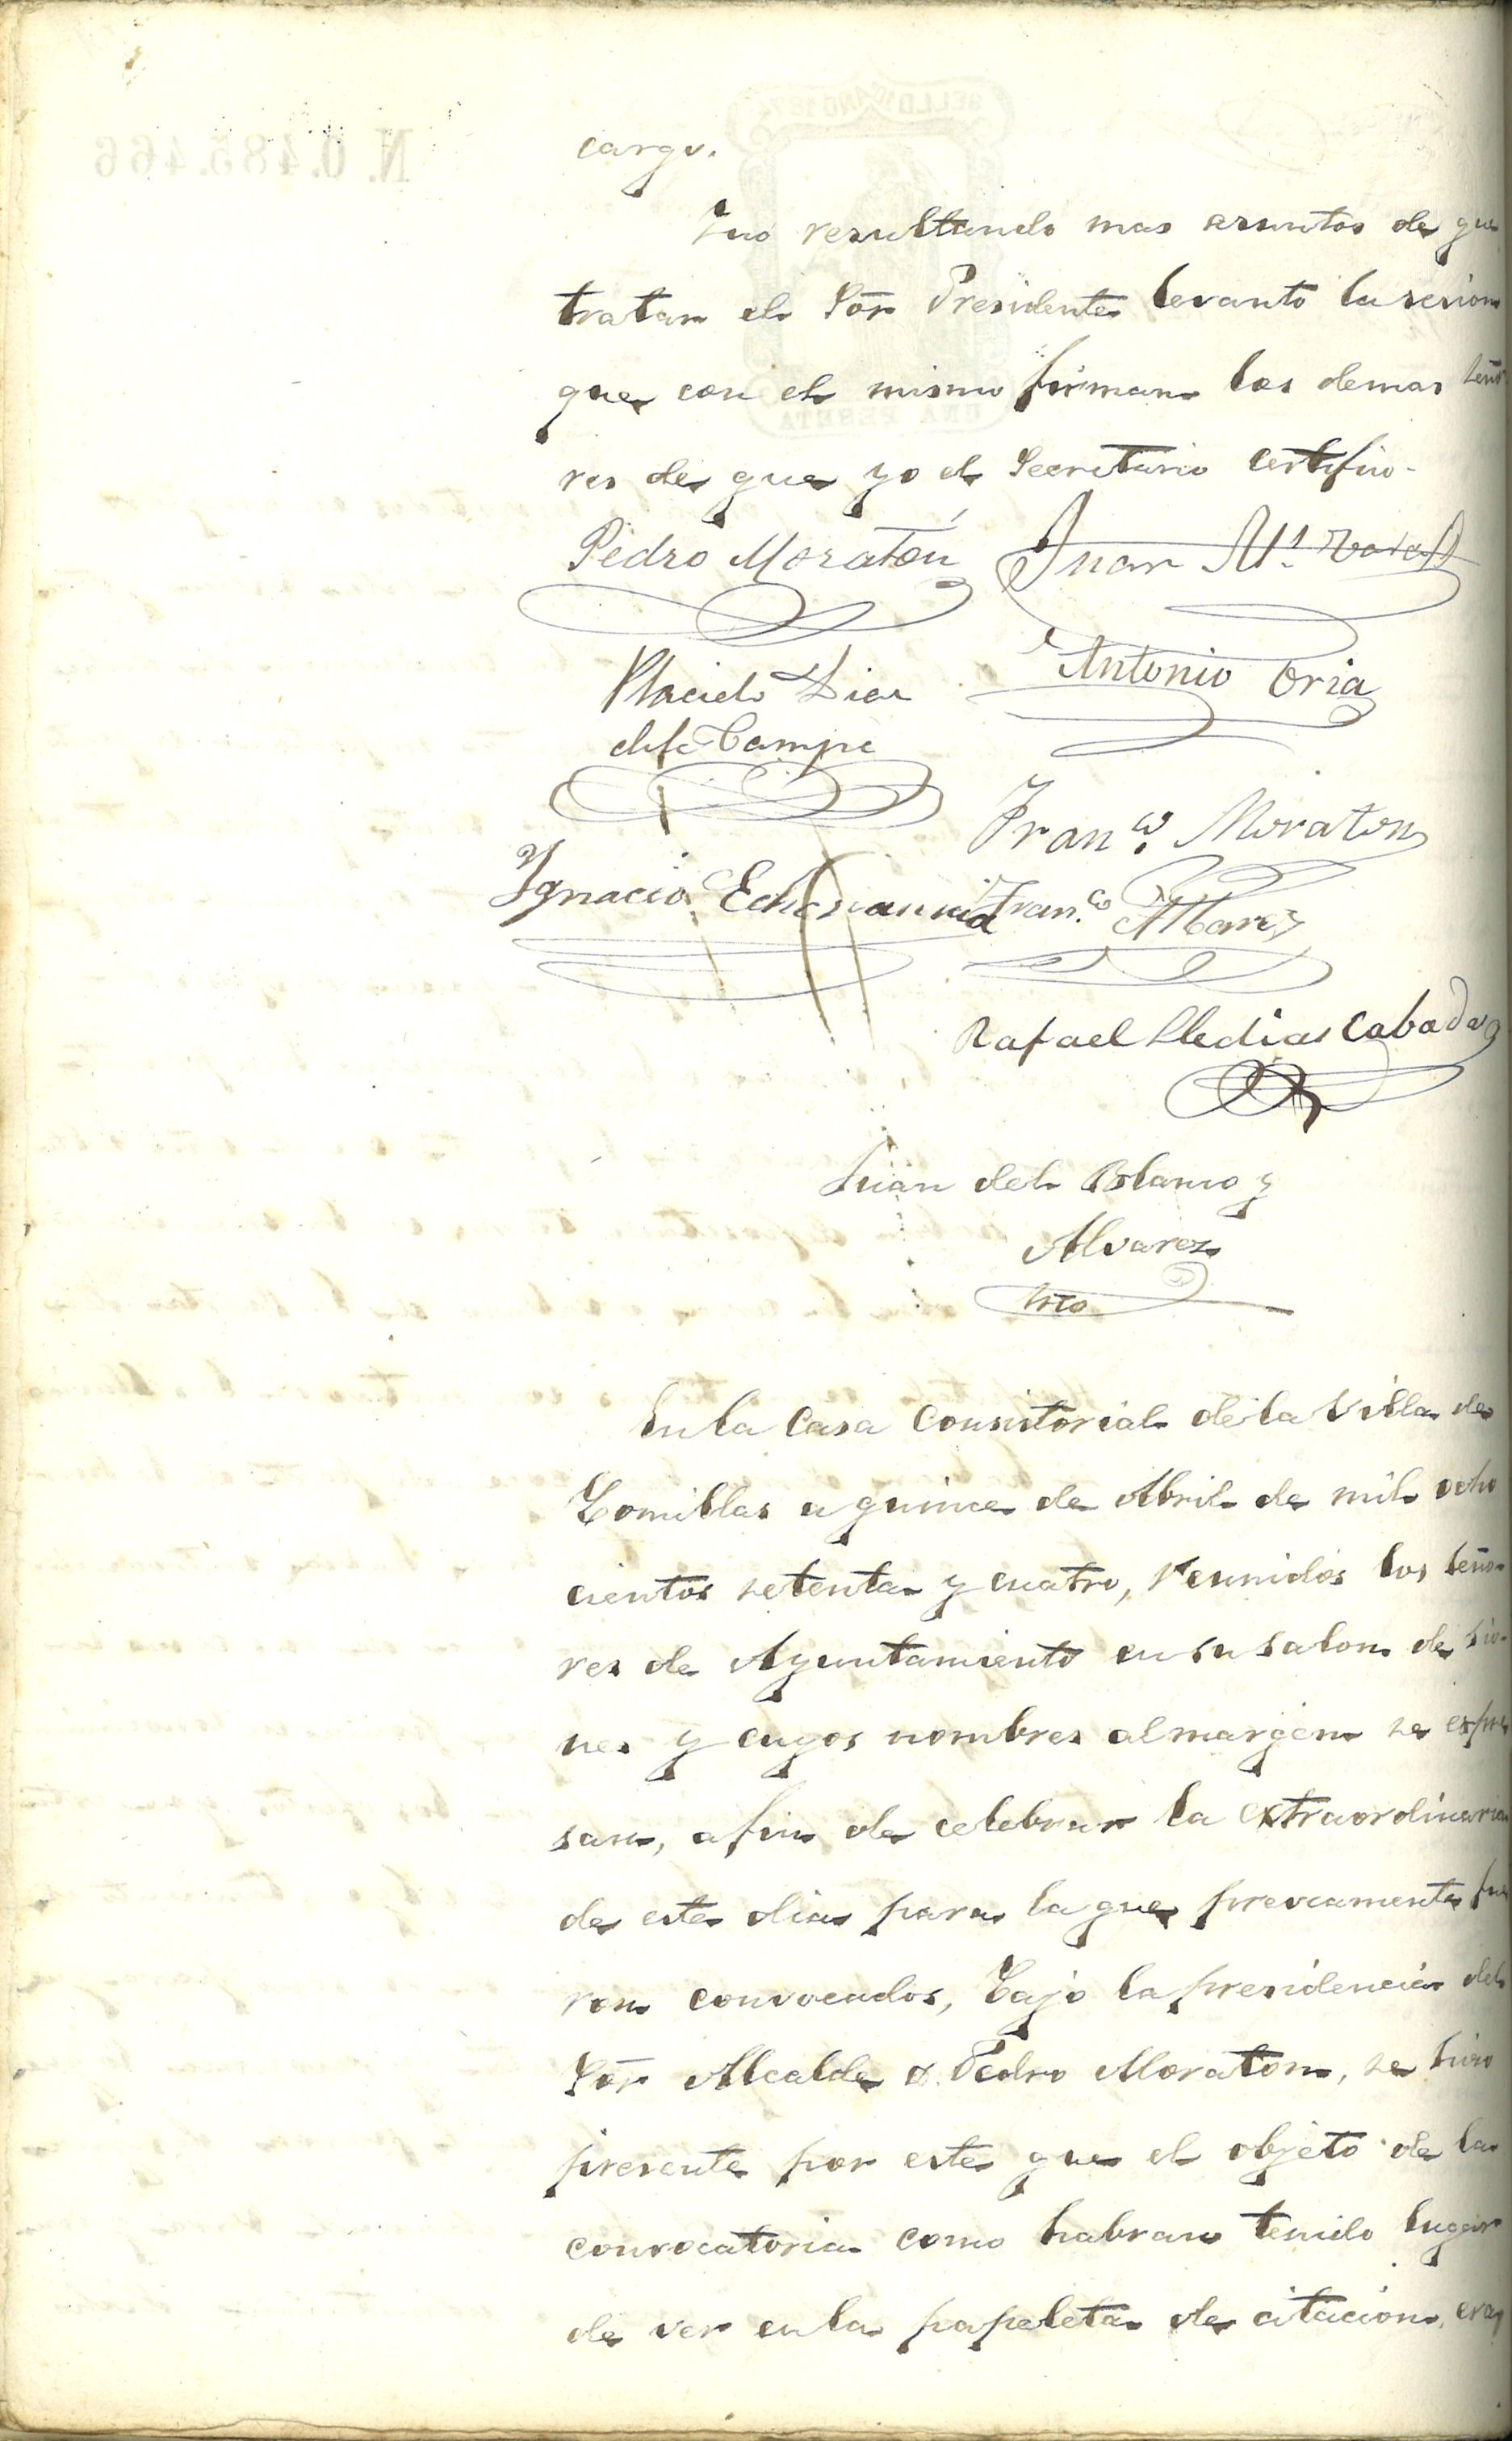 cargo.
Y no resultando mas asuntos de que
tratar el Sor Presidente levantó la sesion
que con el mismo firman los demas Seño
res de que yo el Secretario certifico.
Pedro Moratón Juan M.
Placido Diaz Antonio Oria
de la Campa
Franco. Moraton
Ygnacio Franco. Albarez
Rafael Lledias Cabada
Juan del Blanco y
Alvarez
Srio
En la Casa Consistorial de la Villa de
Comillas a quince de Abril de mil ocho
cientos setenta y cuatro, reunidos los Seño-
res de Ayuntamiento en su salon de sio-
nes y cuyos nombres al margen se espre
san, a fin de celebrar la extraordinaria
de este dia para la que previamente fue
ron convocados, bajo la presidencia del
Sor Alcalde D. Pedro Moraton, se hizo
presente por este que el objeto de la
convocatoria como habran tenido lugar
de ver en la papeleta de citacion, era
N. 0.485.466
SELLO 10º AÑO 1874
UNA PESETA